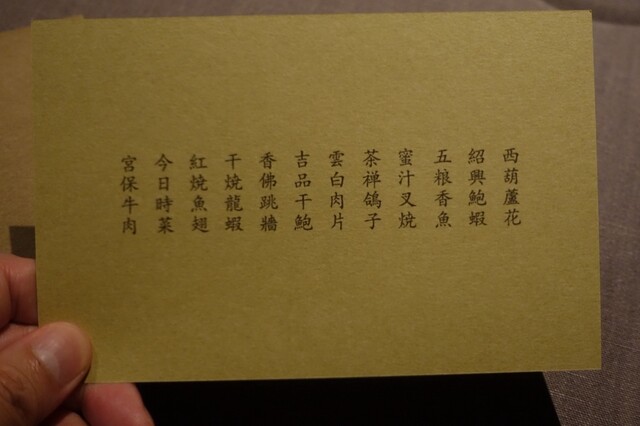 西葫蘆花
紹興鮑蝦
五粮香魚
蜜汁叉燒
茶禅鴿子
雲白肉片
吉品干鮑
香佛跳牆
干燒龍蝦
紅燒魚翅
今日時菜
宮保牛肉